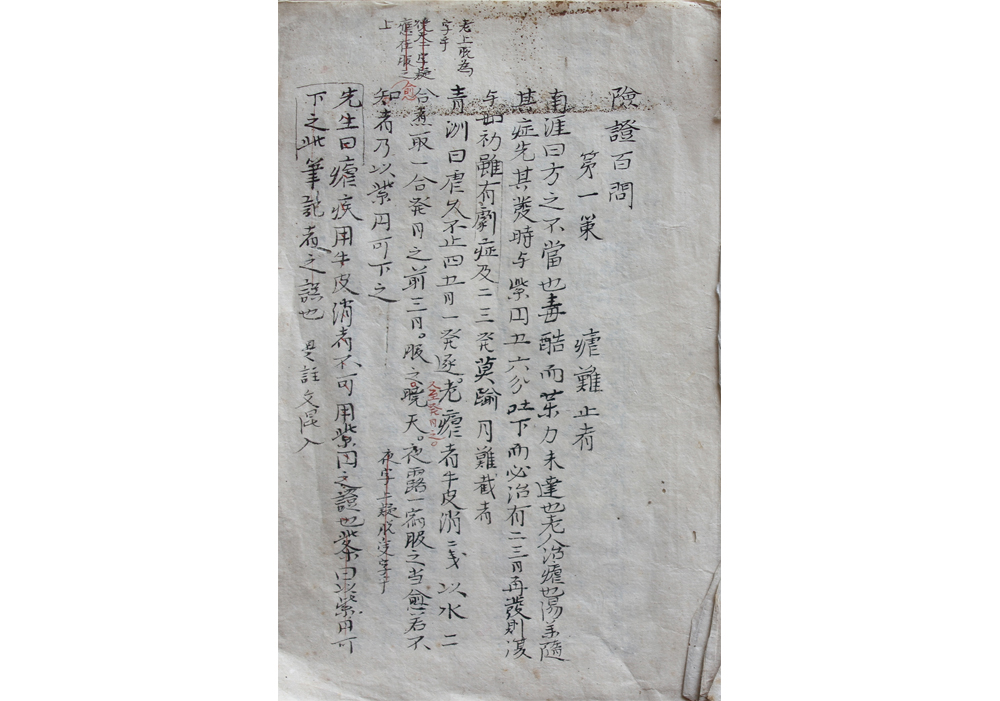 險證百問
第一策 瘧難止者
南涯曰方之不當也毒酷而薬力未達也老人治瘧也湯薬隨
其症先其發時与紫円五六分吐下而必治有二三日再發則復
与如初雖有劇症及二三発莫踰月難截者
青洲曰瘧久不止四五月一発逐老瘧者牛皮消二戔以水二
合煮取一合発日之前三日服之曉天夜露一宿服之当愈若不
知者乃以紫円可下之
先生曰瘧疾用牛皮消者不可用紫円之證也柴曰以紫円可
下之此筆記者之誤也 是註文混入
老上既為
字乎
曉天二字疑
應在服之
上
愈
至発日之
夜字上疑脱定字乎